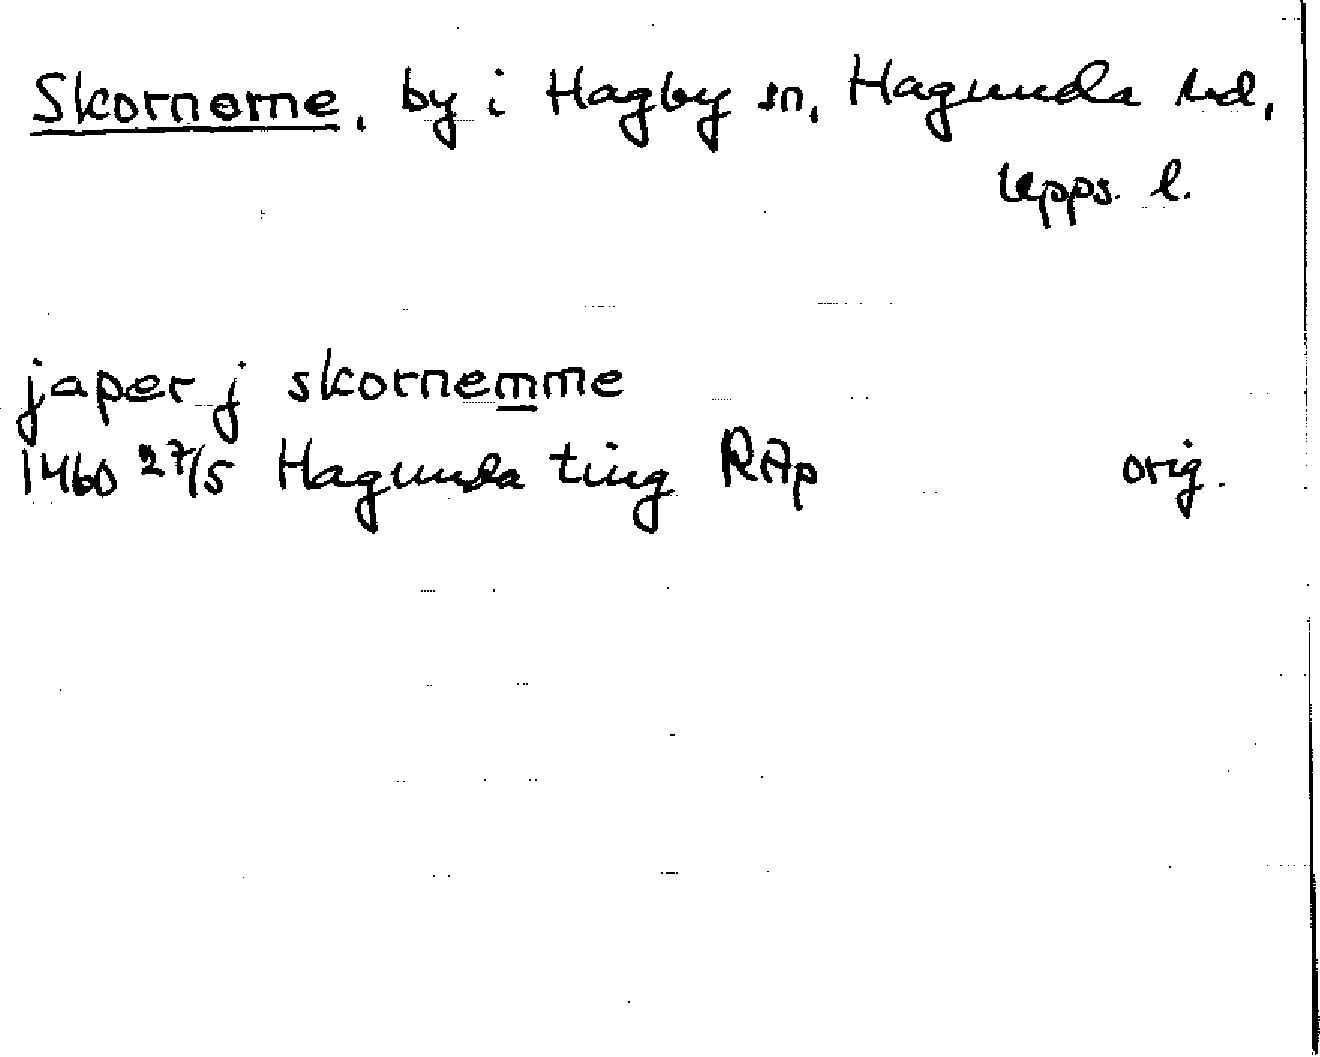 Skorneme, by i Hagby sn, Hagunda hd,
Upps. l.
japer j skornemme
1460 27/5 Hagunda ting RAp orig.